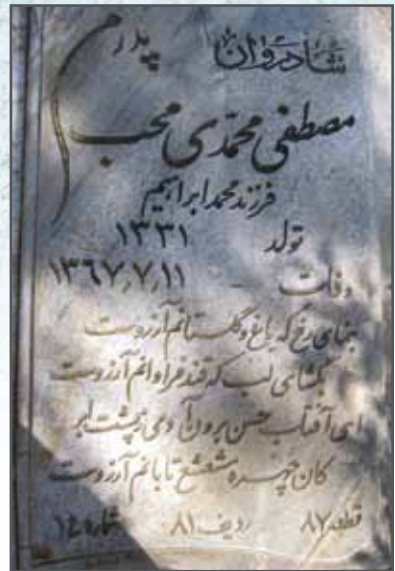 شادروان پدرم
مصطفی محمدی محب
فرزند محمد ابراهیم
تولد ۱۳۳۱
وفات ۱۳۶۷٫۷٫۱۱
بنمای رخ که باغ و گلستانم آرزوست
بگشای لب که قند فراوانم آرزوست
ای آفتاب حسن برون آ دمی ز پشت ابر
کان چهره مشعشع تابانم آرزوست
قطعه ۸۷ ردیف ۸۱ شماره